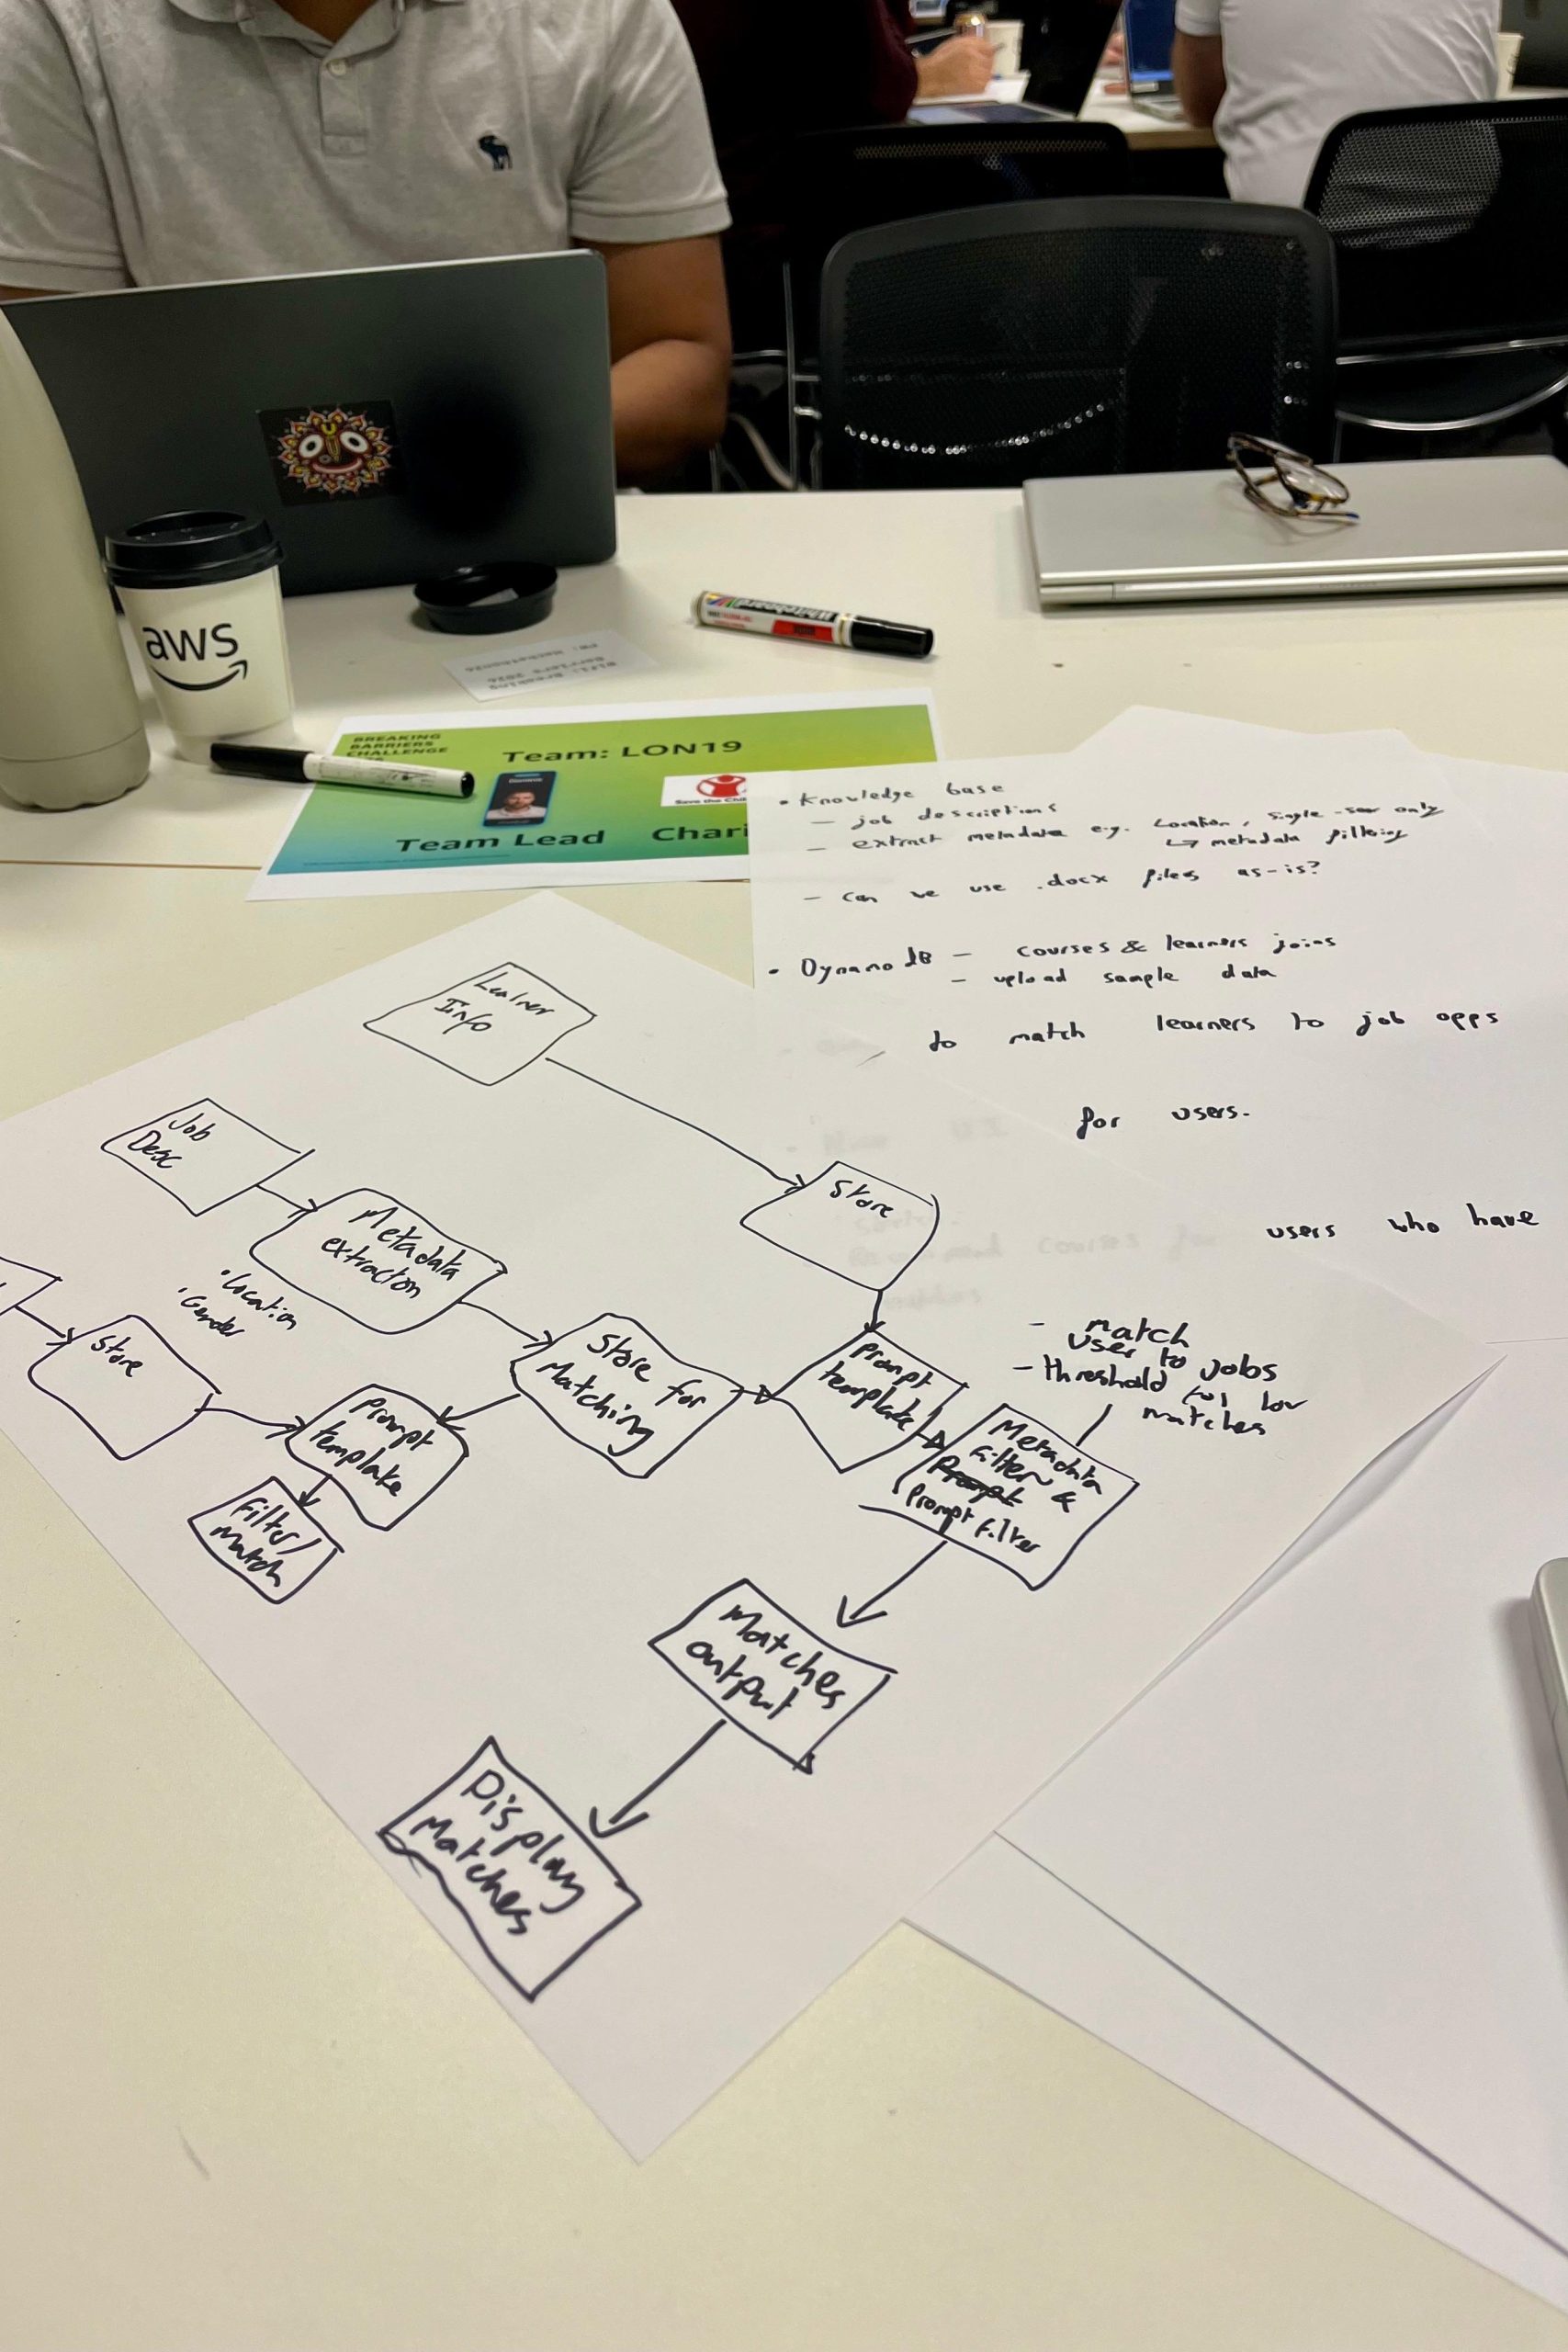 aws
WiFi: Breaking
Barriers 2026
PW: Hackathon26
BREAKING
BARRIERS
CHALLENGE
Team: LON19
Save the Chi
Team Lead
Chari
• Knowledge base
– job descriptions
– extract metadata e.g. Location, single-sex only
↳ metadata filtering
– can we use .docx files as-is?
• DynamoDB – courses & learners joins
– upload sample data
to match learners to job opps
for users.
users who have
Learner
Info
Job
Desc
Metadata
extraction
• Location
• Gender
Store
Store
Store for
Matching
Prompt
template
Prompt
template
Filter/
Match
– match
user to jobs
– threshold for low
matches
Metadata
Filter &
Prompt
Prompt Filter
Matches
output
Display
Matches